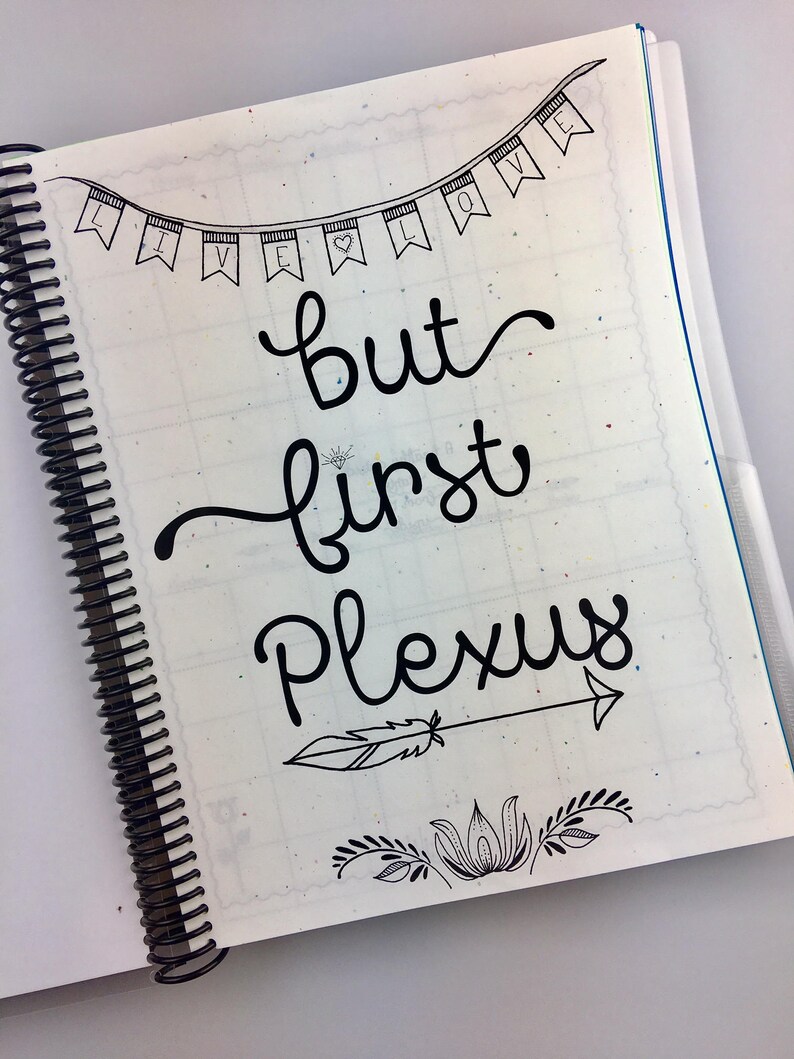 LIVE LOVE
but
first
Plexus